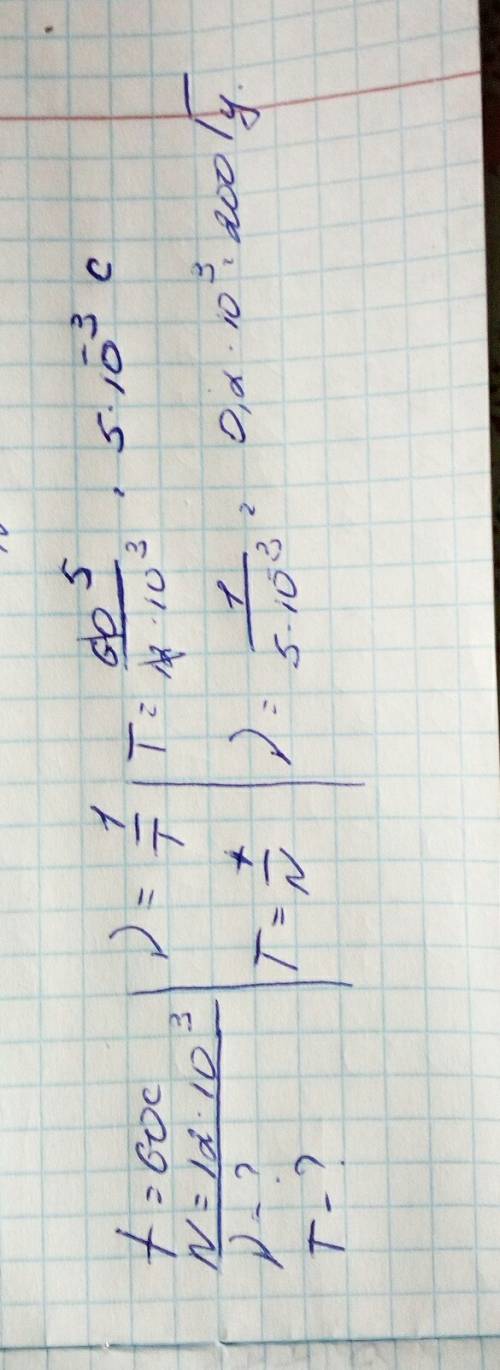 t = 60c
N = 12 · 10³
ν - ?
T - ?
ν = 1/T
T = t/N
T = 60⁵/12 · 10³ = 5 · 10⁻³ c
ν = 1/5 · 10⁻³ = 0,2 · 10³ = 200 Гц.